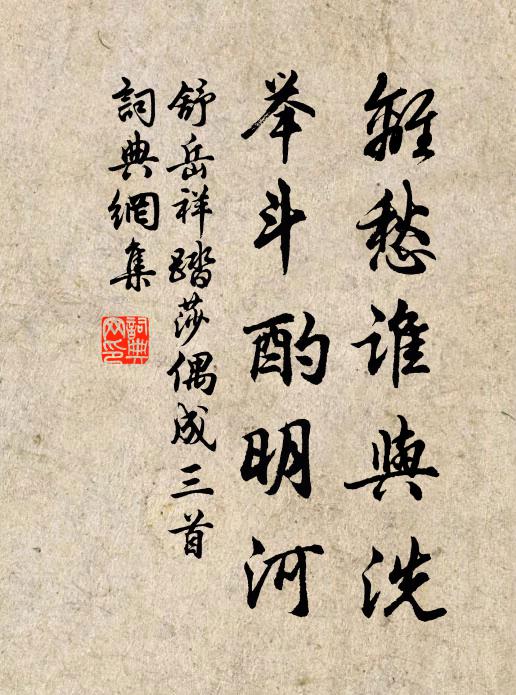 離愁谁與洗
举斗酌明河
舒岳祥踏莎偶成三首
詞典網集
詞典網印